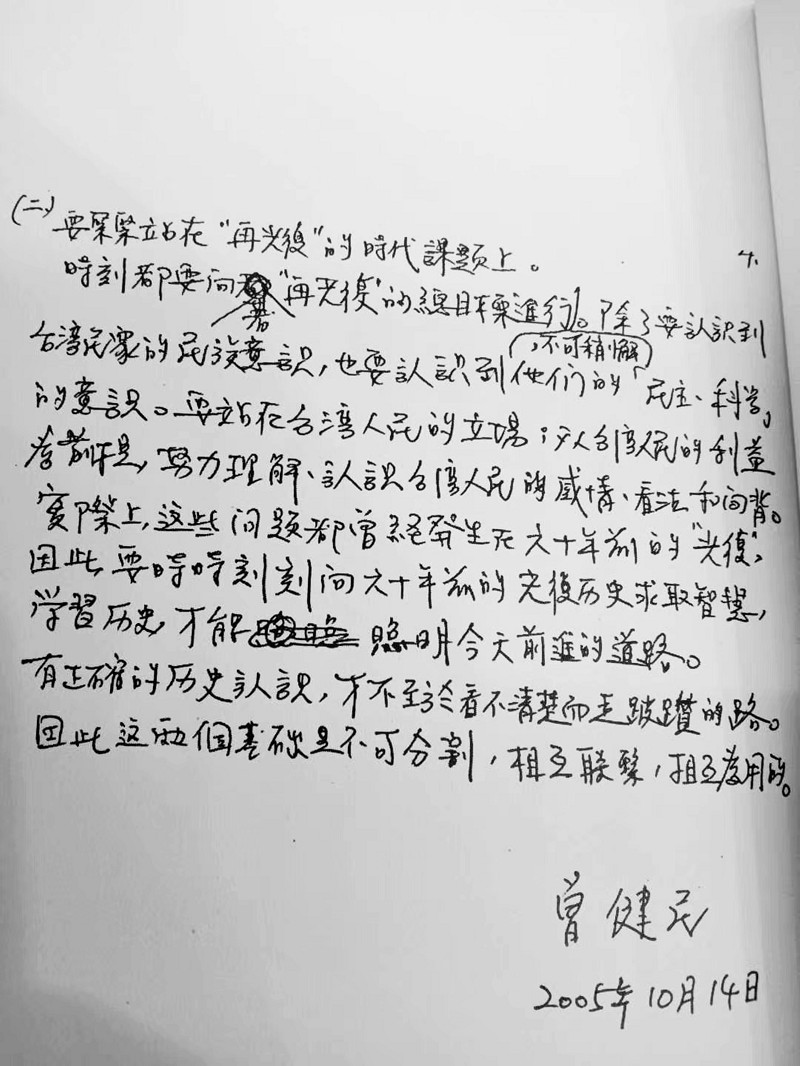 4.
(二)要緊緊站在“再光復”的時代課題上。
時刻都要向著“再光復”的總目標進行。除了要認識到
，不可稍懈
台湾民眾的民族意識，也要認識到他们的「民主、科学」
的意識。要站在台湾人民的立場；以台湾人民的利益
為前提，努力理解、認識台湾人民的感情、看法和向背。
實際上，这些问題都曾經發生在六十年前的“光復”，
因此要時時刻刻向六十年前的光復历史求取智慧，
学習历史，才能照明今天前進的道路。
有正確的历史認識，才不至於看不清楚而走的路。
因此这兩個基础是不可分割，相互联繫，相互為用的。
曾健民
2005年10月14日